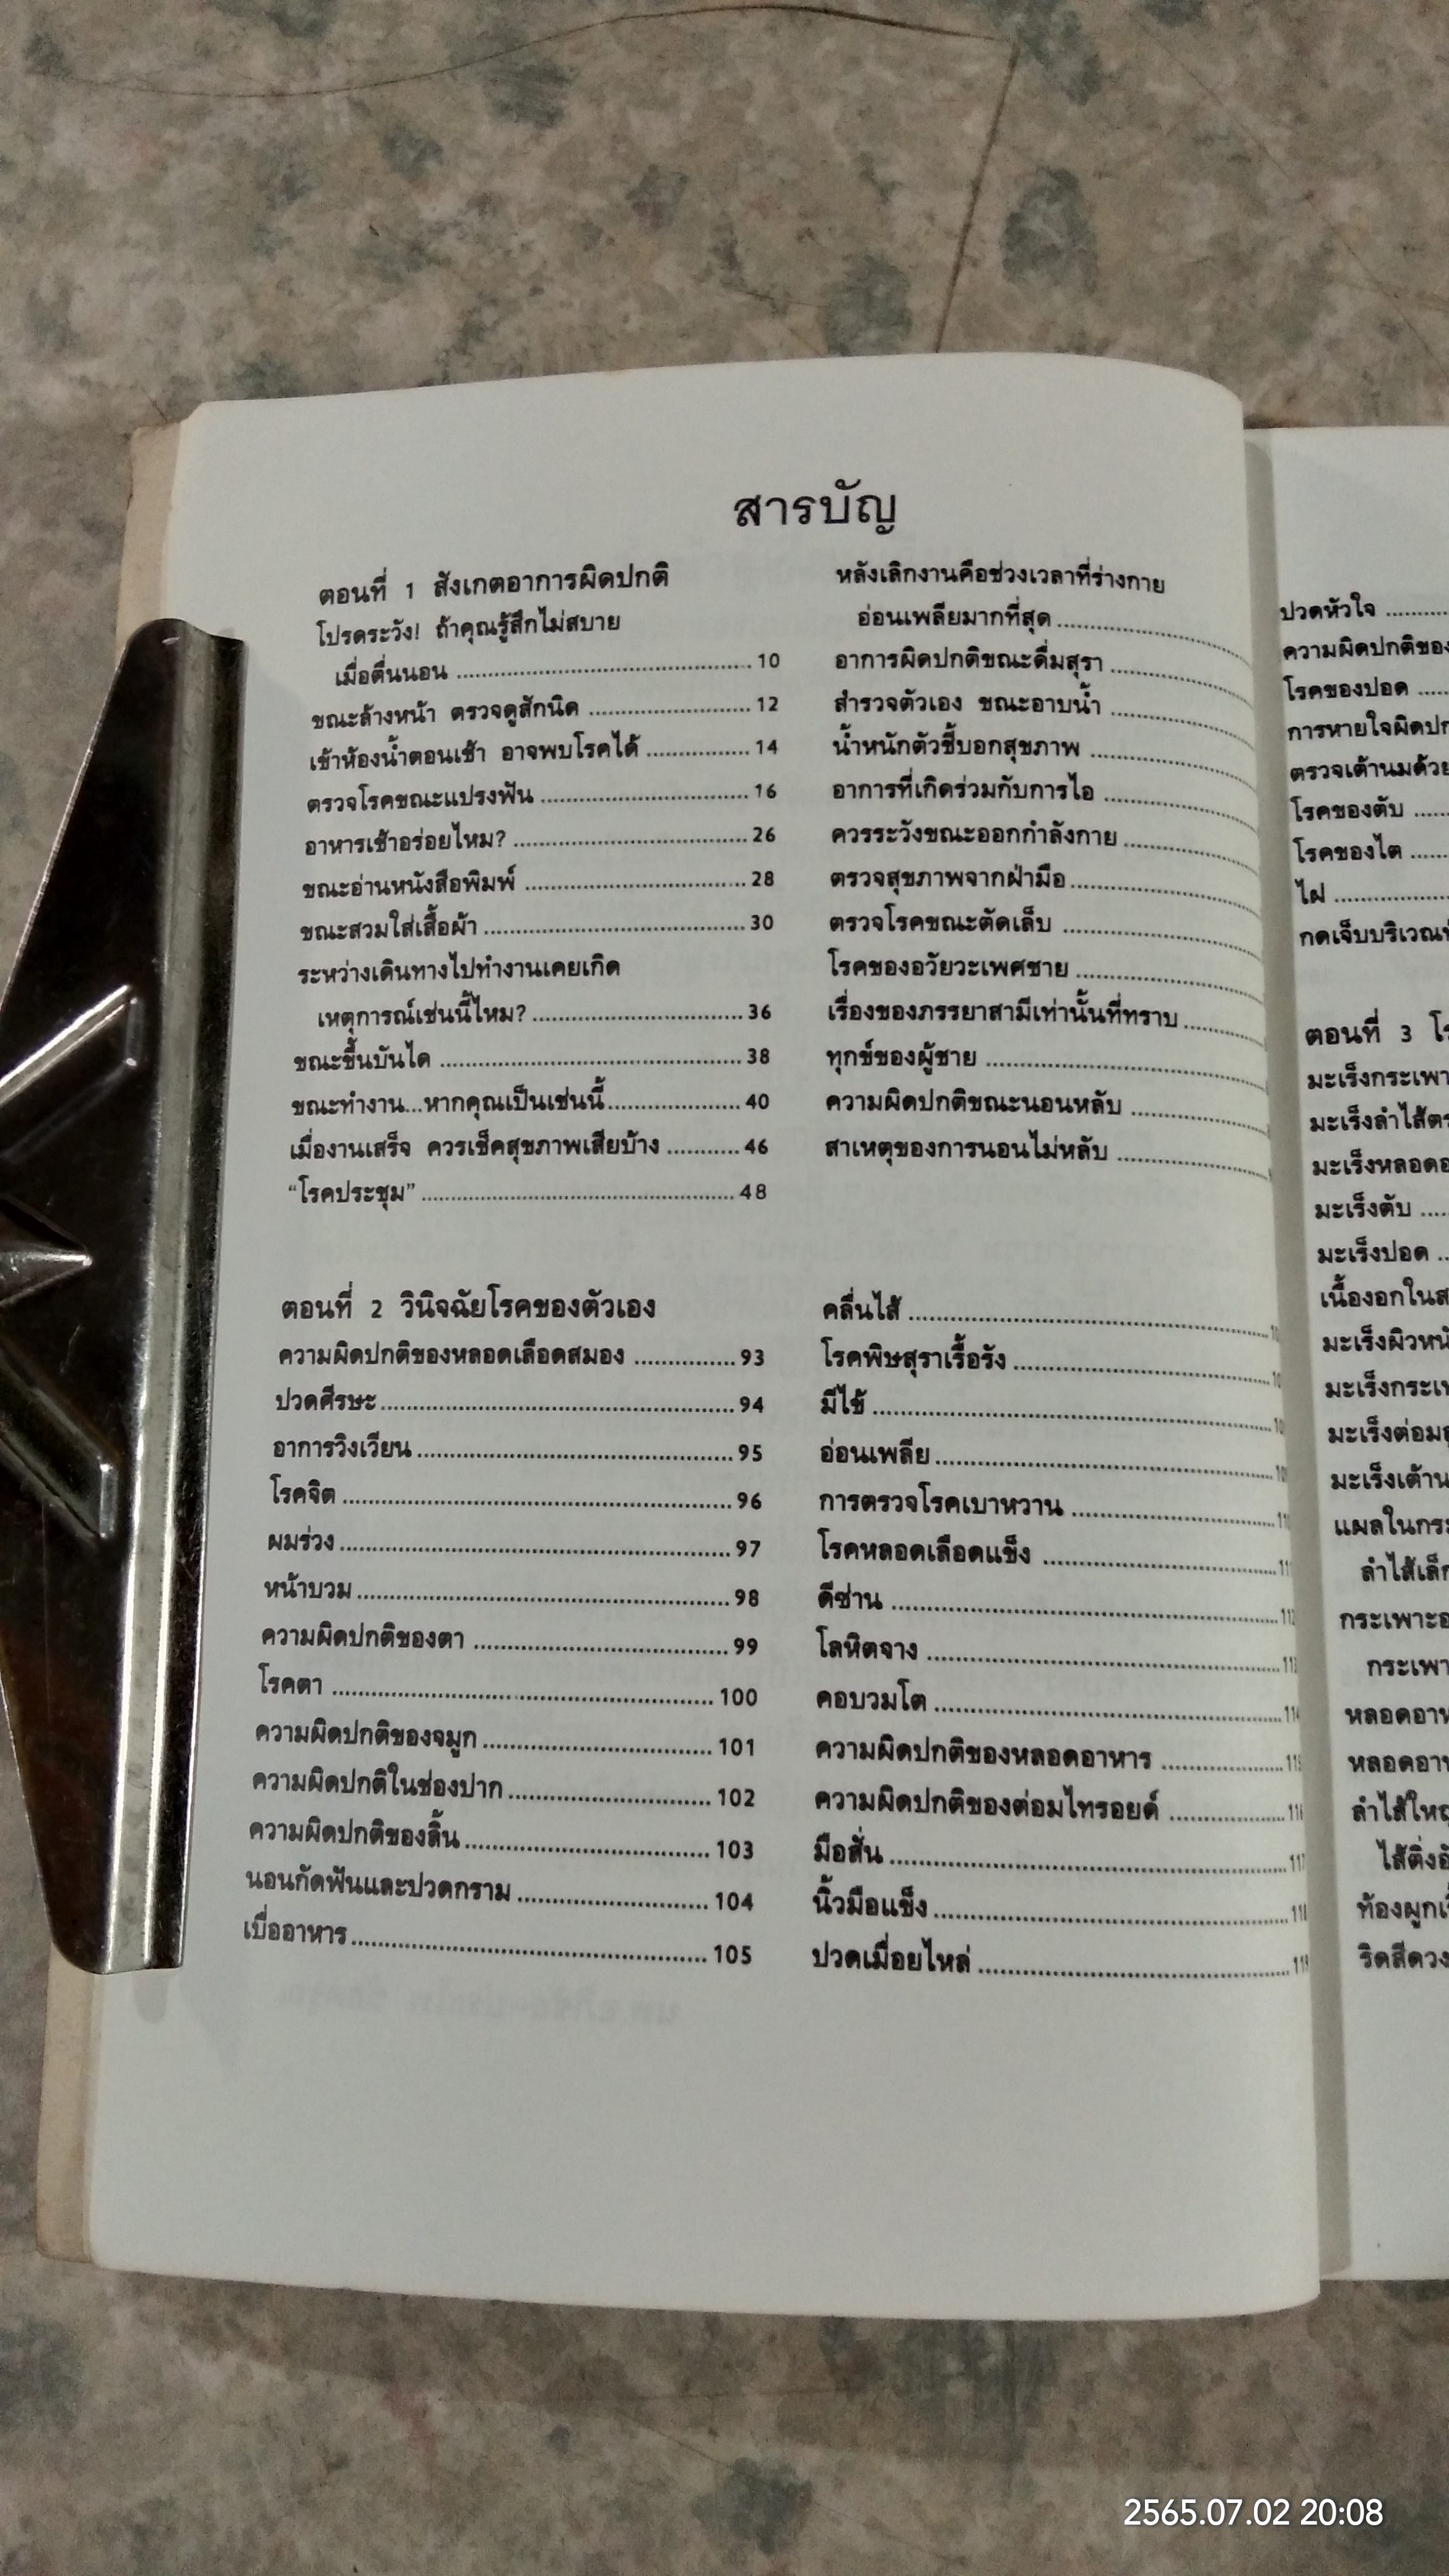 สารบัญ
ตอนที่ 1 สังเกตอาการผิดปกติ
โปรดระวัง! ถ้าคุณรู้สึกไม่สบาย
เมื่อตื่นนอน ........................................ 10
ขณะล้างหน้า ตรวจดูสักนิด ...................... 12
เข้าห้องน้ำตอนเช้า อาจพบโรคได้ .............. 14
ตรวจโรคขณะแปรงฟัน ............................ 16
อาหารเช้าอร่อยไหม? ................................ 26
ขณะอ่านหนังสือพิมพ์ .............................. 28
ขณะสวมใส่เสื้อผ้า .................................... 30
ระหว่างเดินทางไปทำงานเคยเกิด
เหตุการณ์เช่นนี้ไหม? .............................. 36
ขณะขึ้นบันได .......................................... 38
ขณะทำงาน...หากคุณเป็นเช่นนี้.................. 40
เมื่องานเสร็จ ควรเช็คสุขภาพเสียบ้าง ........... 46
“โรคประชุม” ........................................... 48
ตอนที่ 2 วินิจฉัยโรคของตัวเอง
ความผิดปกติของหลอดเลือดสมอง .............. 93
ปวดศีรษะ................................................ 94
อาการวิงเวียน .......................................... 95
โรคจิต .................................................... 96
ผมร่วง .................................................... 97
หน้าบวม ................................................. 98
ความผิดปกติของตา ................................. 99
โรคตา .................................................... 100
ความผิดปกติของจมูก ............................... 101
ความผิดปกติในช่องปาก ........................... 102
ความผิดปกติของลิ้น ................................. 103
นอนกัดฟันและปวดกราม .......................... 104
เบื่ออาหาร................................................ 105
หลังเลิกงานคือช่วงเวลาที่ร่างกาย
อ่อนเพลียมากที่สุด ..........................
อาการผิดปกติขณะดื่มสุรา ....................
สำรวจตัวเอง ขณะอาบน้ำ ....................
น้ำหนักตัวชี้บอกสุขภาพ ......................
อาการที่เกิดร่วมกับการไอ ....................
ควรระวังขณะออกกำลังกาย ..................
ตรวจสุขภาพจากฝ่ามือ.........................
ตรวจโรคขณะตัดเล็บ ..........................
โรคของอวัยวะเพศชาย ........................
เรื่องของภรรยาสามีเท่านั้นที่ทราบ ...........
ทุกข์ของผู้ชาย ...................................
ความผิดปกติขณะนอนหลับ ..................
สาเหตุของการนอนไม่หลับ ...................
คลื่นไส้ ............................................
โรคพิษสุราเรื้อรัง ................................
มีไข้ ................................................
อ่อนเพลีย.........................................
การตรวจโรคเบาหวาน .........................
โรคหลอดเลือดแข็ง .............................
ดีซ่าน ..............................................
โลหิตจาง ..........................................
คอบวมโต .........................................
ความผิดปกติของหลอดอาหาร ................
ความผิดปกติของต่อมไทรอยด์ ...............
มือสั่น ..............................................
นิ้วมือแข็ง .........................................
ปวดเมื่อยไหล่ ....................................
ปวดหัวใจ ..........
ความผิดปกติของ
โรคของปอด .....
การหายใจผิดปก
ตรวจเต้านมด้วย
โรคของตับ ......
โรคของไต ......
ไฝ ................
กดเจ็บบริเวณ
ตอนที่ 3
มะเร็งกระเพา
มะเร็งลำไส้ตร
มะเร็งหลอดอ
มะเร็งตับ .....
มะเร็งปอด ...
เนื้องอกในส
มะเร็งผิวหนั
มะเร็งกระเพ
มะเร็งต่อม
มะเร็งเต้าน
แผลในกระ
ลำไส้เล็ก
กระเพาะอ
กระเพา
หลอดอาห
หลอดอาห
ลำไส้ใหญ่
ไส้ติ่งอั
ท้องผูก
ริดสีดวง
2565.07.02 20:08